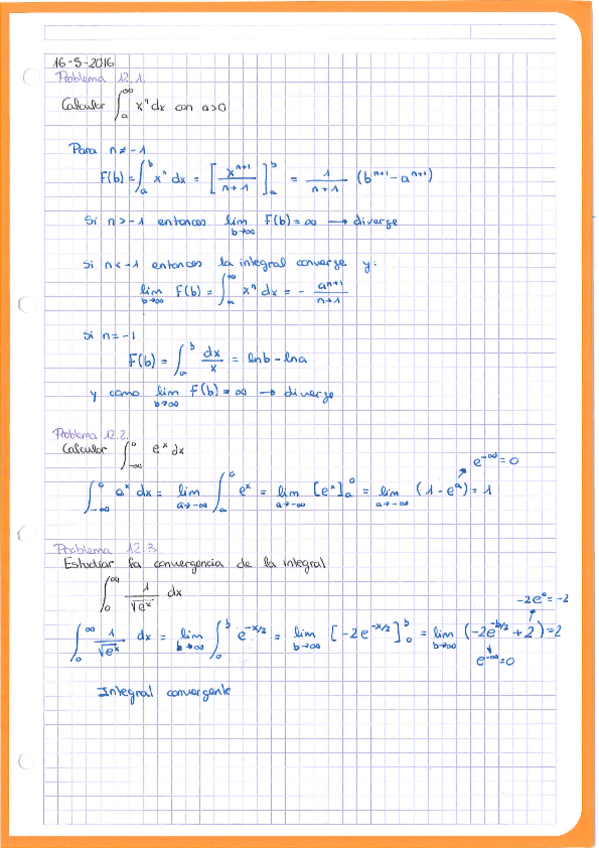 16-5-2016
Problema 12.1.
Calcular ∫_a^∞ x^n dx con a>0
Para n ≠ -1
F(b) = ∫_a^b x^n dx = [x^(n+1)/(n+1)]_a^b = 1/(n+1) (b^(n+1) - a^(n+1))
Si n > -1 entonces lim_(b→∞) F(b) = ∞ → diverge
Si n < -1 entonces la integral converge y:
lim_(b→∞) F(b) = ∫_a^∞ x^n dx = - a^(n+1)/(n+1)
Si n = -1
F(b) = ∫_a^b dx/x = lnb - lna
y como lim_(b→∞) F(b) = ∞ → diverge
Problema 12.2.
Calcular ∫_(-∞)^0 e^x dx
e^(-∞) = 0
∫_(-∞)^0 a^x dx = lim_(a→-∞) ∫_a^0 e^x = lim_(a→-∞) [e^x]_a^0 = lim_(a→-∞) (1 - e^a) = 1
Problema 12.3.
Estudiar la convergencia de la integral
∫_0^∞ 1/√(e^x) dx
-2e^0 = -2
∫_0^∞ 1/√(e^x) dx = lim_(b→∞) ∫_0^b e^(-x/2) = lim_(b→∞) [-2e^(-x/2)]_0^b = lim_(b→∞) (-2e^(-b/2) + 2) = 2
e^(-∞) = 0
Integral convergente